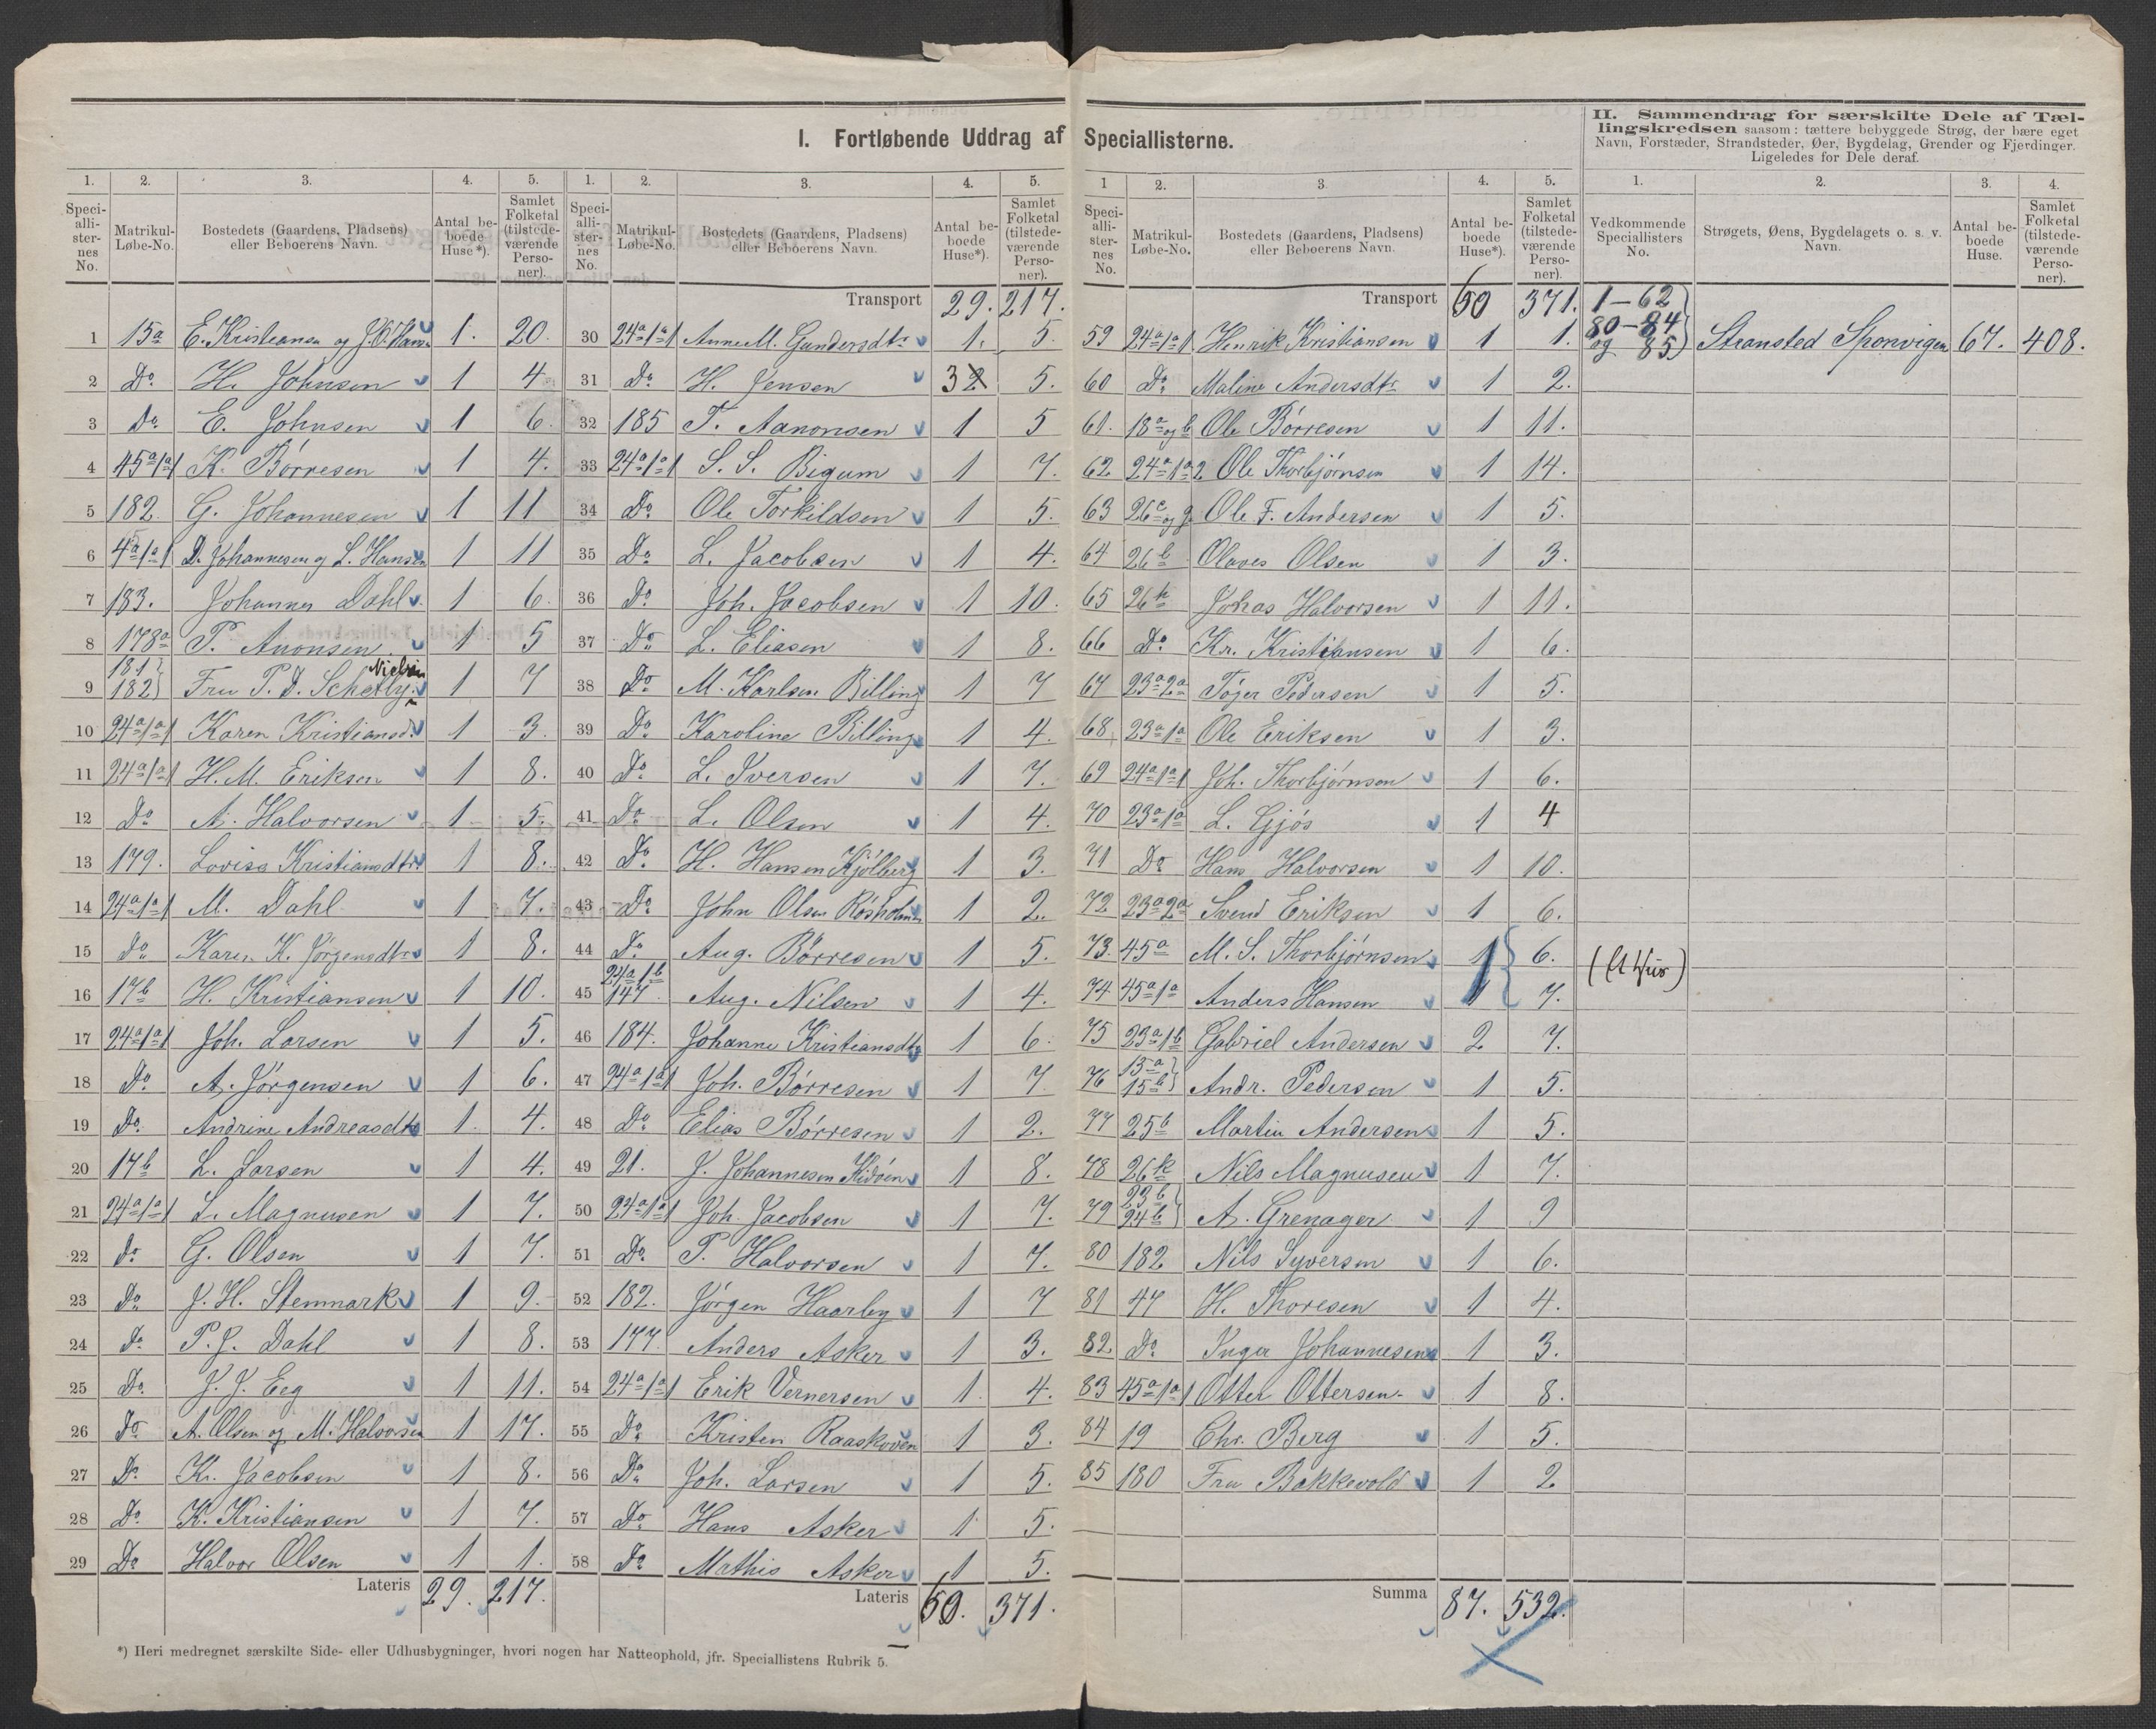 I. Fortløbende Uddrag af Speciallisterne.
II. Sammendrag for særskilte Dele af Tæl-
lingskredsen saasom: tættere bebyggede Strøg, der bære eget
Navn, Forstæder, Strandsteder, Øer, Bygdelag, Grender og Fjerdinger.
Ligeledes for Dele deraf.
1. 2. 3. 4. 5.
Speci-alli-ster-nes No. Matrikul-Løbe-No. Bostedets (Gaardens, Pladsens) eller Beboerens Navn. Antal be-boede Huse*). Samlet Folketal (tilstede-værende Perso-ner).
1 15a E. Kristiansen og J. O. Hansen 1. 20.
2 Do. H. Johnsen 1 4
3 Do. E. Johnsen 1 6.
4 45a1a1 K. Börresen 1 4.
5 182. G. Johannesen 1 11
6 4a1a1 D. Johannesen og L. Hansen 1 11
7 183. Johannes Dahl 1 6.
8 178a P. Anonsen 1 5
9 181 182 Fru P. D. Schelby Nielsen 1 7
10 24a1a1 Karen Kristiansd. 1 3.
11 24a1a1 H. M. Eriksen 1 8.
12 Do A. Halvorsen 1 5.
13 179. Lovisa Kristiansdtr 1 8.
14 24a1a1 M. Dahl 1 7.
15 Do Karen K. Jörgensdtr 1 8.
16 17b H. Kristiansen 1 10.
17 24a1a1 Joh. Larsen 1 5.
18 Do A. Jörgensen 1 6.
19 Do. Andrine Andreasdtr 1. 4.
20 17b L. Larsen 1 4.
21 24a1a1 L. Magnusen 1 7.
22 Do G. Olsen 1 7.
23 Do J. H. Stenmark 1 9.
24 Do P. J. Dahl 1 8.
25 Do. J. J. Eeg 1 11.
26 Do A. Olsen og M. Halvorsen 1 17.
27 Do. Kr. Jacobsen 1 8.
28 Do. K. Kristiansen 1 7.
29 Do Halvor Olsen 1 1.
Lateris 29. 217.
1. 2. 3. 4. 5.
Speci-alli-ster-nes No. Matrikul-Løbe-No. Bostedets (Gaardens, Pladsens) eller Beboerens Navn. Antal be-boede Huse*). Samlet Folketal (tilstede-værende Perso-ner).
Transport 29. 217.
30 24a1a1 Anne M. Gundersdtr 1. 5.
31 Do H. Jensen 32 5.
32 185 T. Aanonsen 1 5
33 24a1a1 S. S. Bigum 1 7.
34 Do. Ole Torkildsen 1 5.
35 Do L. Jacobsen 1 4.
36 Do. Joh. Jacobsen 1 10.
37 Do L. Eliasen 1 8.
38 Do M. Karlsen Billing 1 7
39 Do Karoline Billing 1 4.
40 Do. L. Iversen 1 7.
41 Do L. Olsen 1 4.
42 Do. H. Hansen Kjölberg 1 3.
43 Do. John Olsen Rösholmen 1 2.
44 Do. Aug. Börresen 1 5.
45 24a1b 147. Aug. Nilsen 1 4.
46 184. Johanne Kristiansdtr 1 6.
47 24a1a1 Joh. Börresen 1 7
48 Do. Elias Börresen 1 2.
49 21. J. Johannesen Kidöen 1 8.
50 24a1a1 Joh. Jacobsen 1 7.
51 Do. P. Halvorsen 1 7.
52 182. Jörgen Haarby 1 7
53 177. Anders Asker 1 3.
54 24a1a1 Erik Vernersen 1. 4.
55 Do. Kristen Raaskoven 1 3.
56 Do. Joh. Larsen 1 5.
57 Do. Hans Asker 1 5.
58 Do Mathis Asker 1 5.
Lateris 60. 371.
1 2. 3. 4. 5.
Speci-alli-ster-nes No. Matrikul-Løbe-No. Bostedets (Gaardens, Pladsens) eller Beboerens Navn. Antal be-boede Huse*). Samlet Folketal (tilstede-værende Perso-ner).
Transport 60 371.
59 24a1a1. Henrik Kristiansen 1 1.
60 Do. Maline Andersdtr 1 2.
61. 18a og b Ole Börresen 1 11.
62 24a1a2 Ole Thorbjörnsen 1 14.
63 26c og g Ole F. Andersen 1 5.
64 26b Olaves Olsen 1 3.
65 26h Johas Halvorsen 1 11.
66 Do Kr. Kristiansen 1 6.
67 23a2a Töjer Pedersen 1 5.
68 23a1a Ole Eriksen 1 3.
69 24a1a1 Joh. Thorbjörnsen 1 6.
70 23a1a L. Gjös 1 4
71 Do Hans Halvorsen 1 10.
72 23a2a Svend Eriksen 1 6.
73. 45a M. S. Thorbjörnsen 1 6. (Et Hus)
74 45a1a Anders Hansen 1 7.
75 23a1b Gabriel Andersen 2 7.
76 15a 15b Andr. Pedersen 1 5.
77 25b Martin Andersen 1 5.
78 26k Nils Magnusen 1 7.
79 23b 24b A. Grenager 1 9
80 182 Nils Syversen 1 6.
81 47 H. Thoresen 1 4.
82 Do Inger Johannesen 1 3.
83 45a1a1 Otter Ottersen 1 8.
84 19 Chr. Berg 1 5.
85 180 Fru Bakkevold 1 2
Summa 87. 532.
1. 2. 3. 4.
Vedkommende Speciallisters No. Strøgets, Øens, Bygdelagets o. s. v. Navn. Antal be-boede Huse. Samlet Folketal (tilstede-værende Perso-ner).
1–62
80–84
og 85 Stransted Sponvigen 67. 408.
*) Heri medregnet særskilte Side- eller Udhusbygninger, hvori nogen har Natteophold, jfr. Speciallistens Rubrik 5.